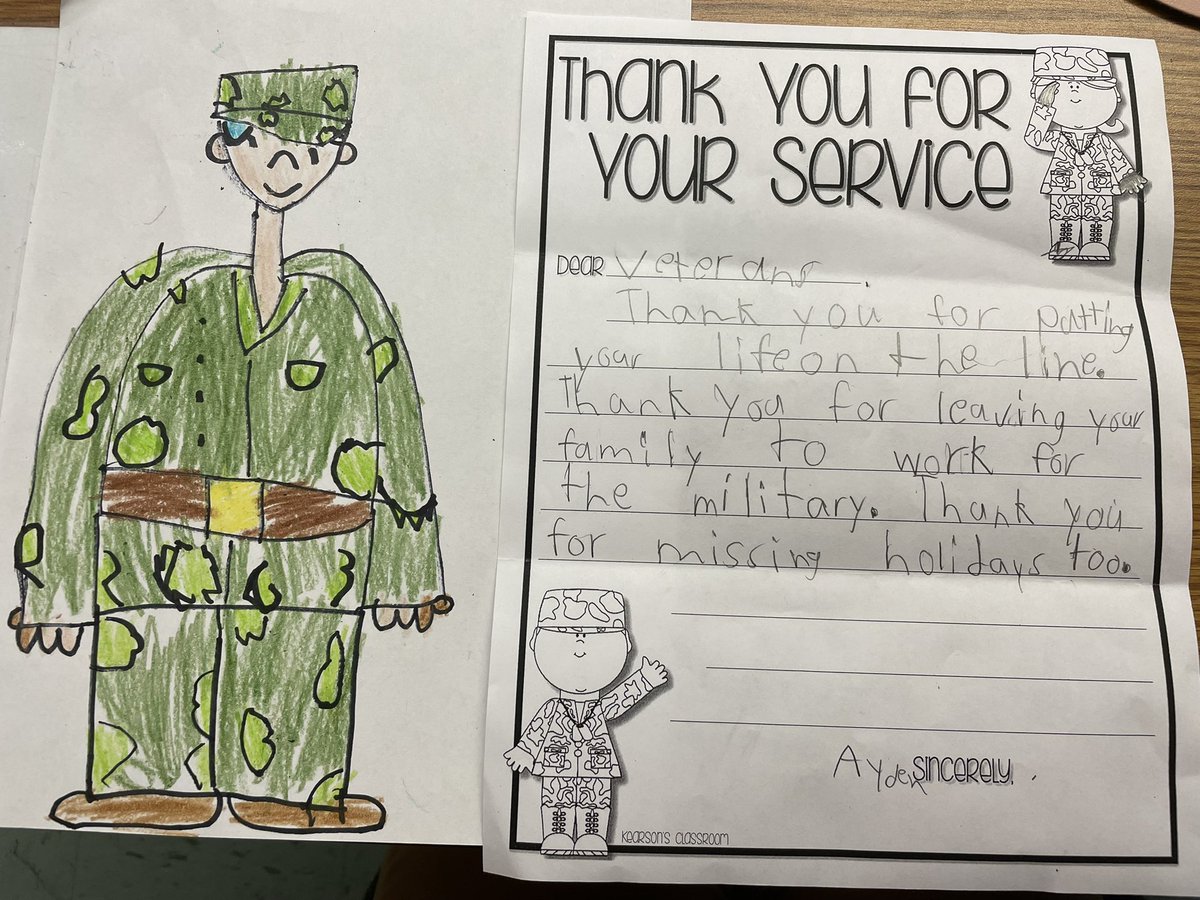 Thank you for
your service
Dear Veterans.
Thank you for putting
your life on the line.
Thank you for leaving your
family to work for
the military. Thank you
for missing holidays too.
Ayden Sincerely,
Kearson's Classroom